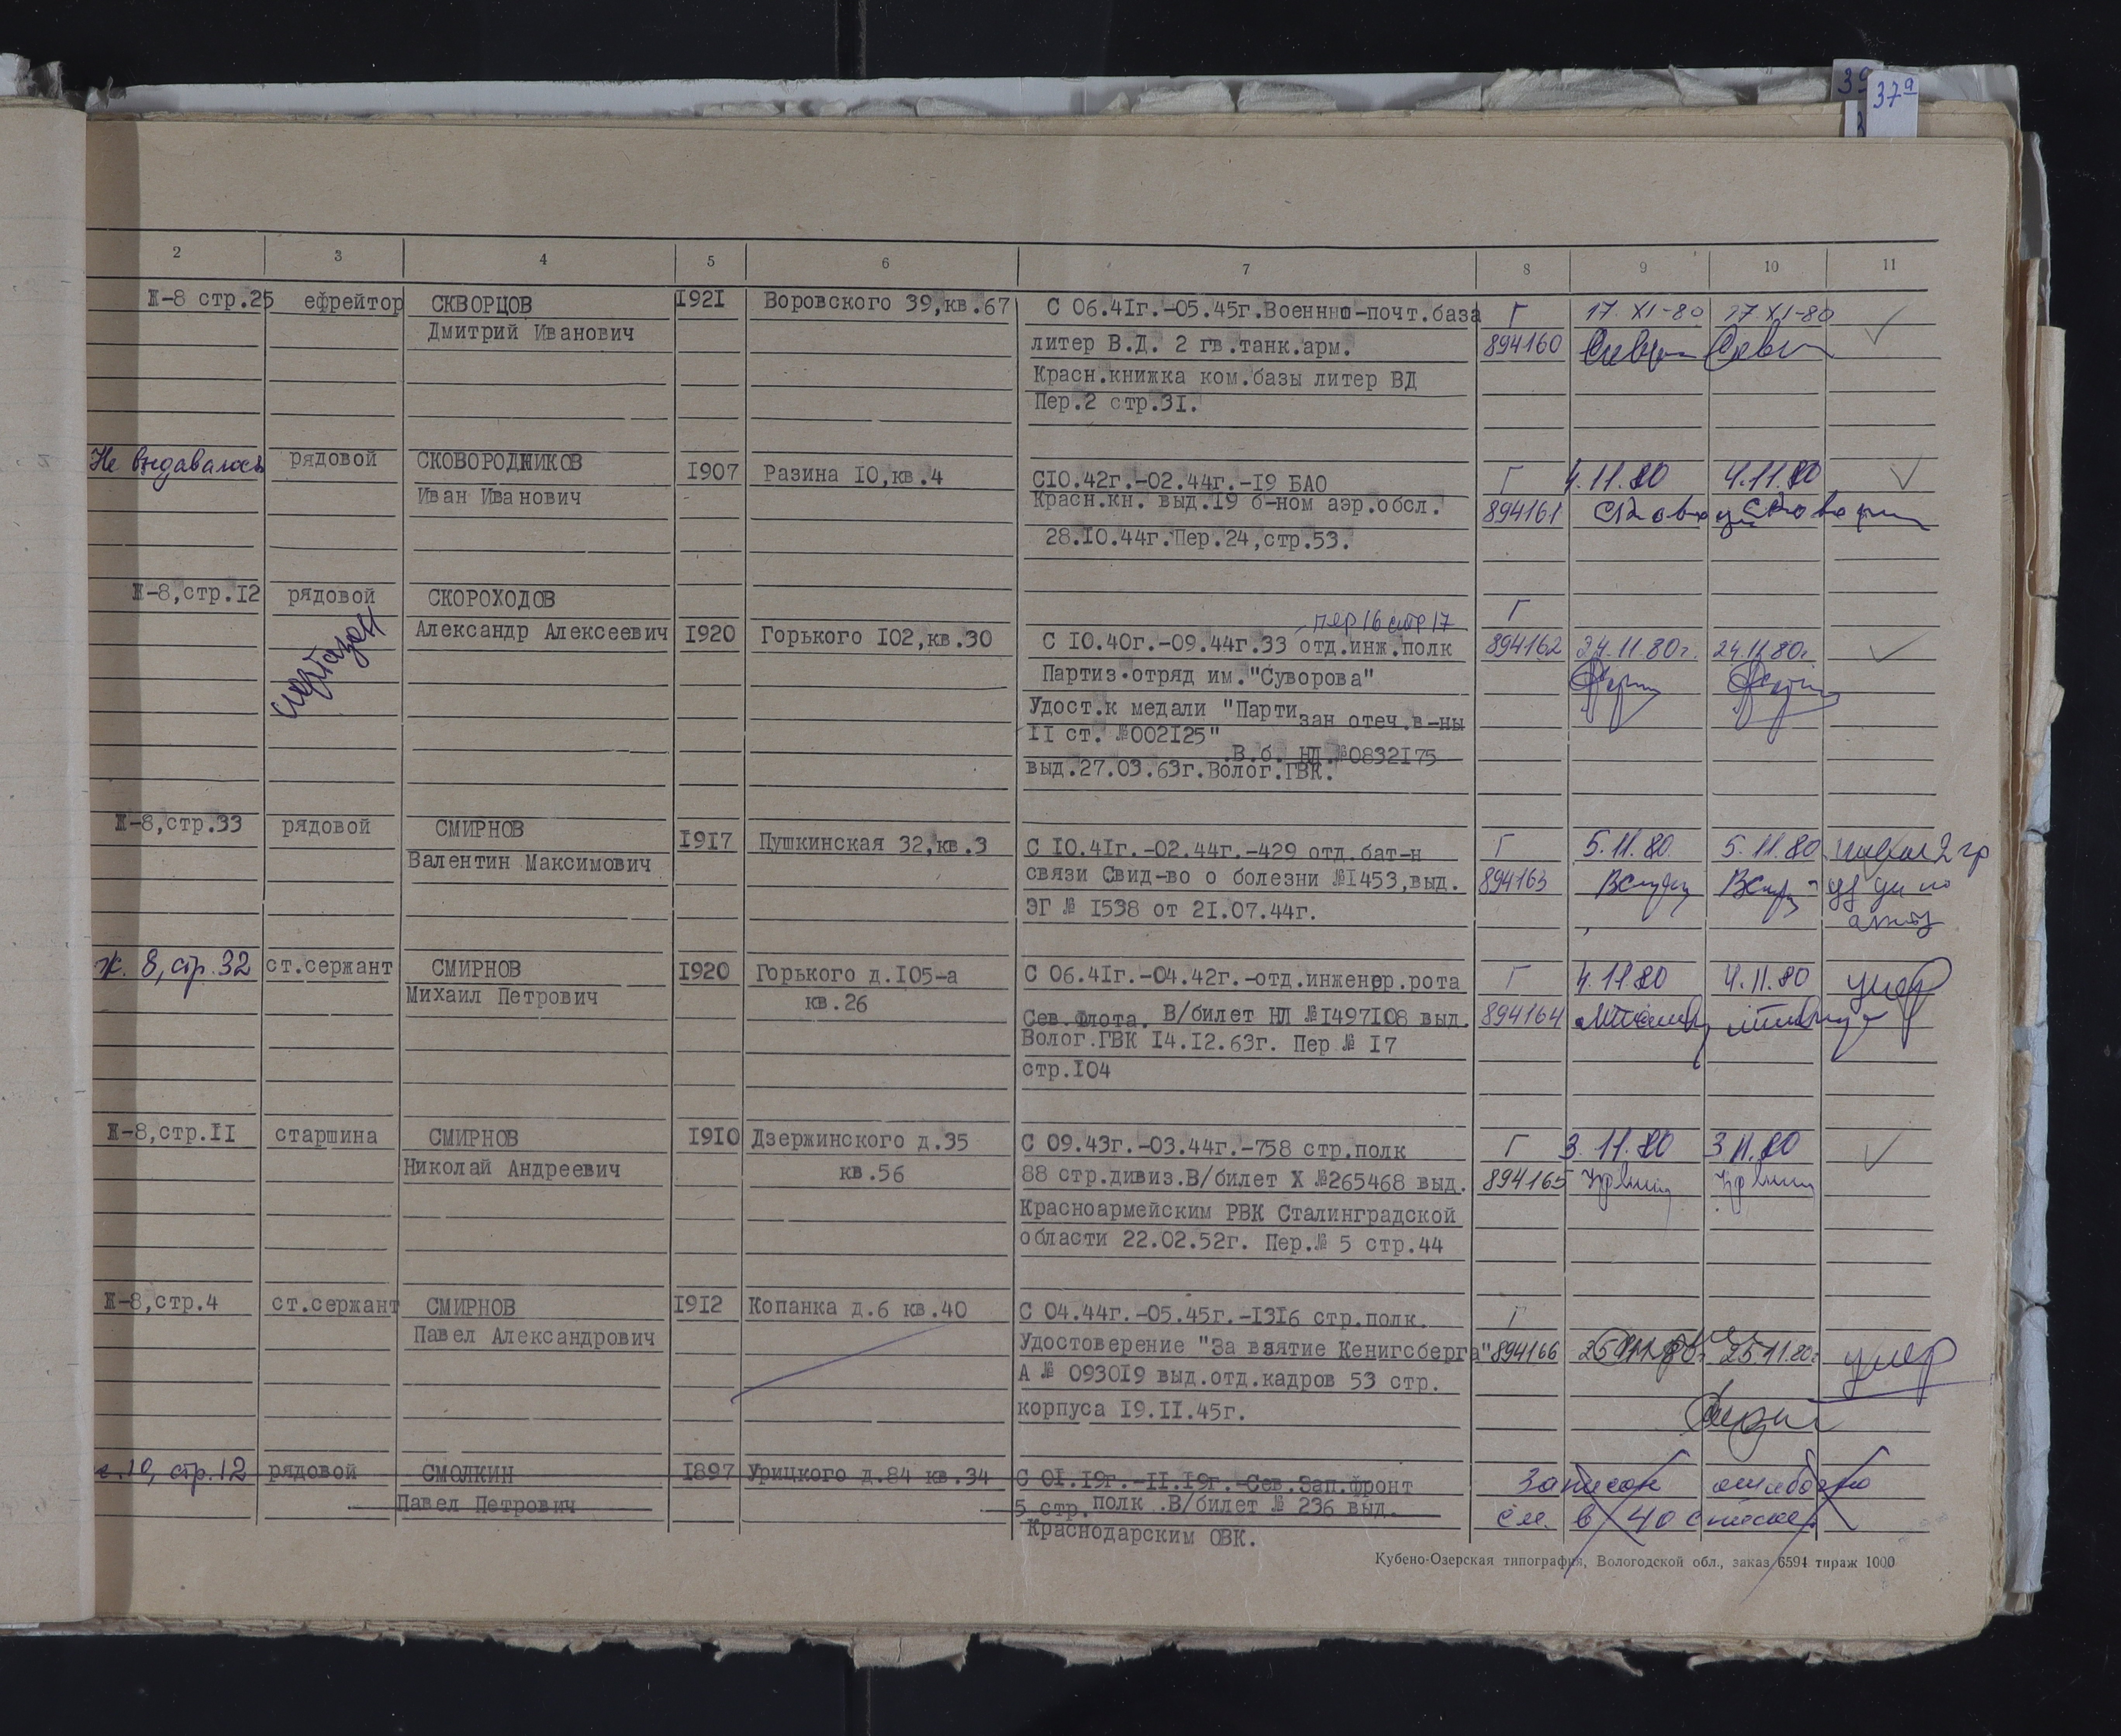 39
37а
2 3 4 5 6 7 8 9 10 11
Ж-8 стр.25 ефрейтор СКВОРЦОВ 1921 Воровского 39,кв.67 С 06.41г.-05.45г.Военнно-почт.база Г 17.XI-80 17.XI-80
Дмитрий Иванович литер В.Д. 2 гв.танк.арм. 894160
Красн.книжка ком.базы литер ВД
Пер.2 стр.31.
Не выдавалось рядовой СКОВОРОДНИКОВ 1907 Разина 10,кв.4 С10.42г.-02.44г.-19 БАО Г 4.11.80 4.11.80
Иван Иванович Красн.кн. выд.19 б-ном аэр.обсл. 894161
28.10.44г.Пер.24,стр.53.
Ж-8,стр.12 рядовой СКОРОХОДОВ Г
пер 16 стр 17
Александр Алексеевич 1920 Горького 102,кв.30 С 10.40г.-09.44г.33 отд.инж.полк 894162 24.11.80г. 24.11.80г.
Партиз.отряд им."Суворова"
Удост.к медали "Партизан отеч.в-ны
II ст. №002125"
В.б. НД №0832175
выд.27.03.63г.Волог.ГВК.
Ж-8,стр.33 рядовой СМИРНОВ 1917 Пушкинская 32,кв.3 С 10.41г.-02.44г.-429 отд.бат-н Г 5.11.80 5.11.80 2 гр
Валентин Максимович связи Свид-во о болезни №1453,выд. 894163
ЭГ № 1538 от 21.07.44г.
ж. 8, стр. 32 ст.сержант СМИРНОВ 1920 Горького д.105-а С 06.41г.-04.42г.-отд.инженер.рота Г 4.11.80 4.11.80 умер
Михаил Петрович кв.26 Сев.Флота. В/билет НЛ №1497108 выд. 894164
Волог.ГВК 14.12.63г. Пер № 17
стр.104
Ж-8,стр.11 старшина СМИРНОВ 1910 Дзержинского д.35 С 09.43г.-03.44г.-758 стр.полк Г 3.11.80 3.11.80
Николай Андреевич кв.56 88 стр.дивиз.В/билет Х №265468 выд. 894165
Красноармейским РВК Сталинградской
области 22.02.52г. Пер.№ 5 стр.44
Ж-8,стр.4 ст.сержант СМИРНОВ 1912 Копанка д.6 кв.40 С 04.44г.-05.45г.-1316 стр.полк. Г
Павел Александрович Удостоверение "За взятие Кенигсберга" 894166 25.11.80г. 25.11.80г. умер
А № 093019 выд.отд.кадров 53 стр.
корпуса 19.11.45г.
10, стр.12 рядовой СМОЛКИН 1897 Урицкого д.84 кв.34 С 01.19г.-11.19г.-Сев.Зап.фронт Записан ошибочно
Павел Петрович 5 стр. полк .В/билет № 236 выд. см. в 40 списке
Краснодарским ОВК.
Кубено-Озерская типография, Вологодской обл., заказ 6594 тираж 1000